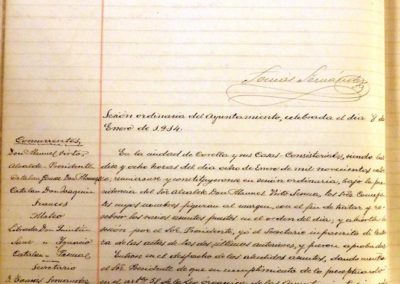 Tomás Fernández
Sesión ordinaria del Ayuntamiento, celebrada el día 8 de
Enero de 1.914.
Concurrentes
Don Manuel Soto,
Alcalde-Presidente
Catalan
Catalan Don Joaquin
Frances
Mateo
Sanz Ygnacio
Catalan Pascual
Secretario
D. Tomas Fernandez
En la ciudad de Corella y sus Casas-Consistoriales, siendo las
diez y ocho horas del día ocho de Enero de mil novecientos catorce,
se reunieron y constituyeron en sesión ordinaria, bajo la pre-
sidencia del Sr. Alcalde Don Manuel Soto los Sres. Conceja-
les cuyos nombres figuran al margen, con el fin de tratar y re-
solver los varios asuntos puestos en el orden del día, y abierta la
sesión por el Sr. Presidente, yo el Secretario informante di lectu-
ra de las actas de las dos últimas anteriores, y fueron aprobadas.
Entrose en el despacho de los aludidos asuntos, dando cuenta
el Sr. Presidente de que en cumplimiento de lo preceptuado
en el artº